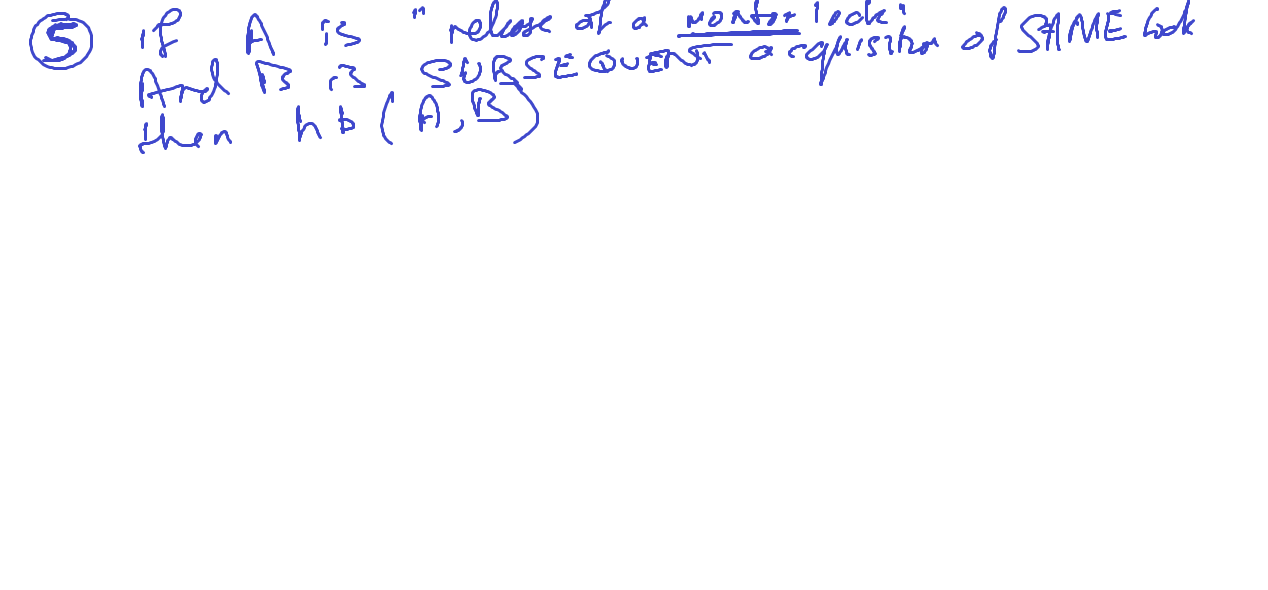 ⑤ if A is "release of a monitor lock"
And B is SUBSEQUENT acquisition of SAME lock
then hb(A,B)